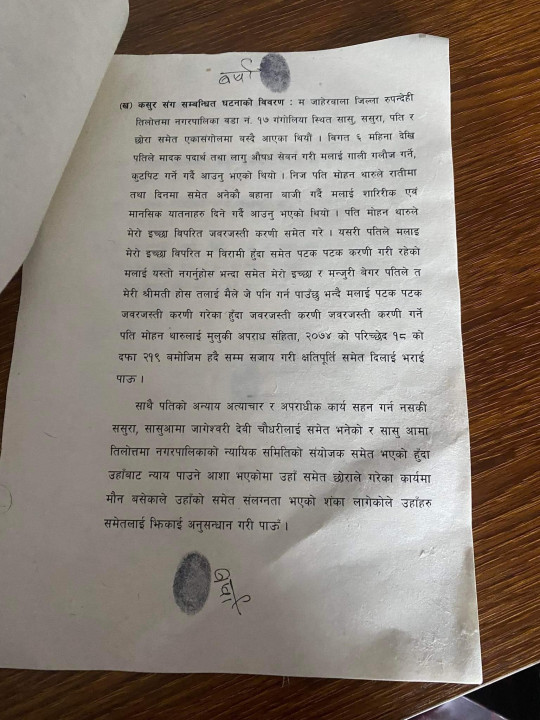 वर्षा
(ख) कसुर संग सम्बन्धित घटनाको विवरण : म जाहेरवाला जिल्ला रुपन्देही
तिलोत्तमा नगरपालिका वडा नं. १७ गंगोलिया स्थित सासु, ससुरा, पति र
छोरा समेत एकासंगोलमा बस्दै आएका थियौं । विगत ६ महिना देखि
पतिले मादक पदार्थ तथा लागु औषध सेवन गरी मलाई गाली गलौज गर्ने,
कुटपिट गर्ने गर्दै आउनु भएको थियो । निज पति मोहन थारुले रातीमा
तथा दिनमा समेत अनेकौ बहाना बाजी गर्दै मलाई शारिरीक एवं
मानसिक यातनाहरु दिने गर्दै आउनु भएको थियो । पति मोहन थारुले
मेरो इच्छा विपरित जवरजस्ती करणी समेत गरे । यसरी पतिले मलाइ
मेरो इच्छा विपरित म विरामी हुँदा समेत पटक पटक करणी गरी रहेको
मलाई यस्तो नगर्नुहोस भन्दा समेत मेरो इच्छा र मन्जुरी बेगर पतिले त
मेरी श्रीमती होस तलाई मैले जे पनि गर्न पाउँछु भन्दै मलाई पटक पटक
जवरजस्ती करणी गरेका हुँदा जवरजस्ती करणी जवरजस्ती करणी गर्ने
पति मोहन थारुलाई मुलुकी अपराध संहिता, २०७४ को परिच्छेद १८ को
दफा २१९ बमोजिम हदै सम्म सजाय गरी क्षतिपूर्ति समेत दिलाई भराई
पाऊ ।
साथै पतिको अन्याय अत्याचार र अपराधीक कार्य सहन गर्न नसकी
ससुरा, सासुआमा जागेश्वरी देवी चौधरीलाई समेत भनेको र सासु आमा
तिलोत्तमा नगरपालिकाको न्यायिक समितिको संयोजक समेत भएको हुँदा
उहाँबाट न्याय पाउने आशा भएकोमा उहाँ समेत छोराले गरेका कार्यमा
मौन बसेकाले उहाँको समेत संलग्नता भएको शंका लागेकोले उहाँहरु
समेतलाई झिकाई अनुसन्धान गरी पाऊँ ।
वर्षा